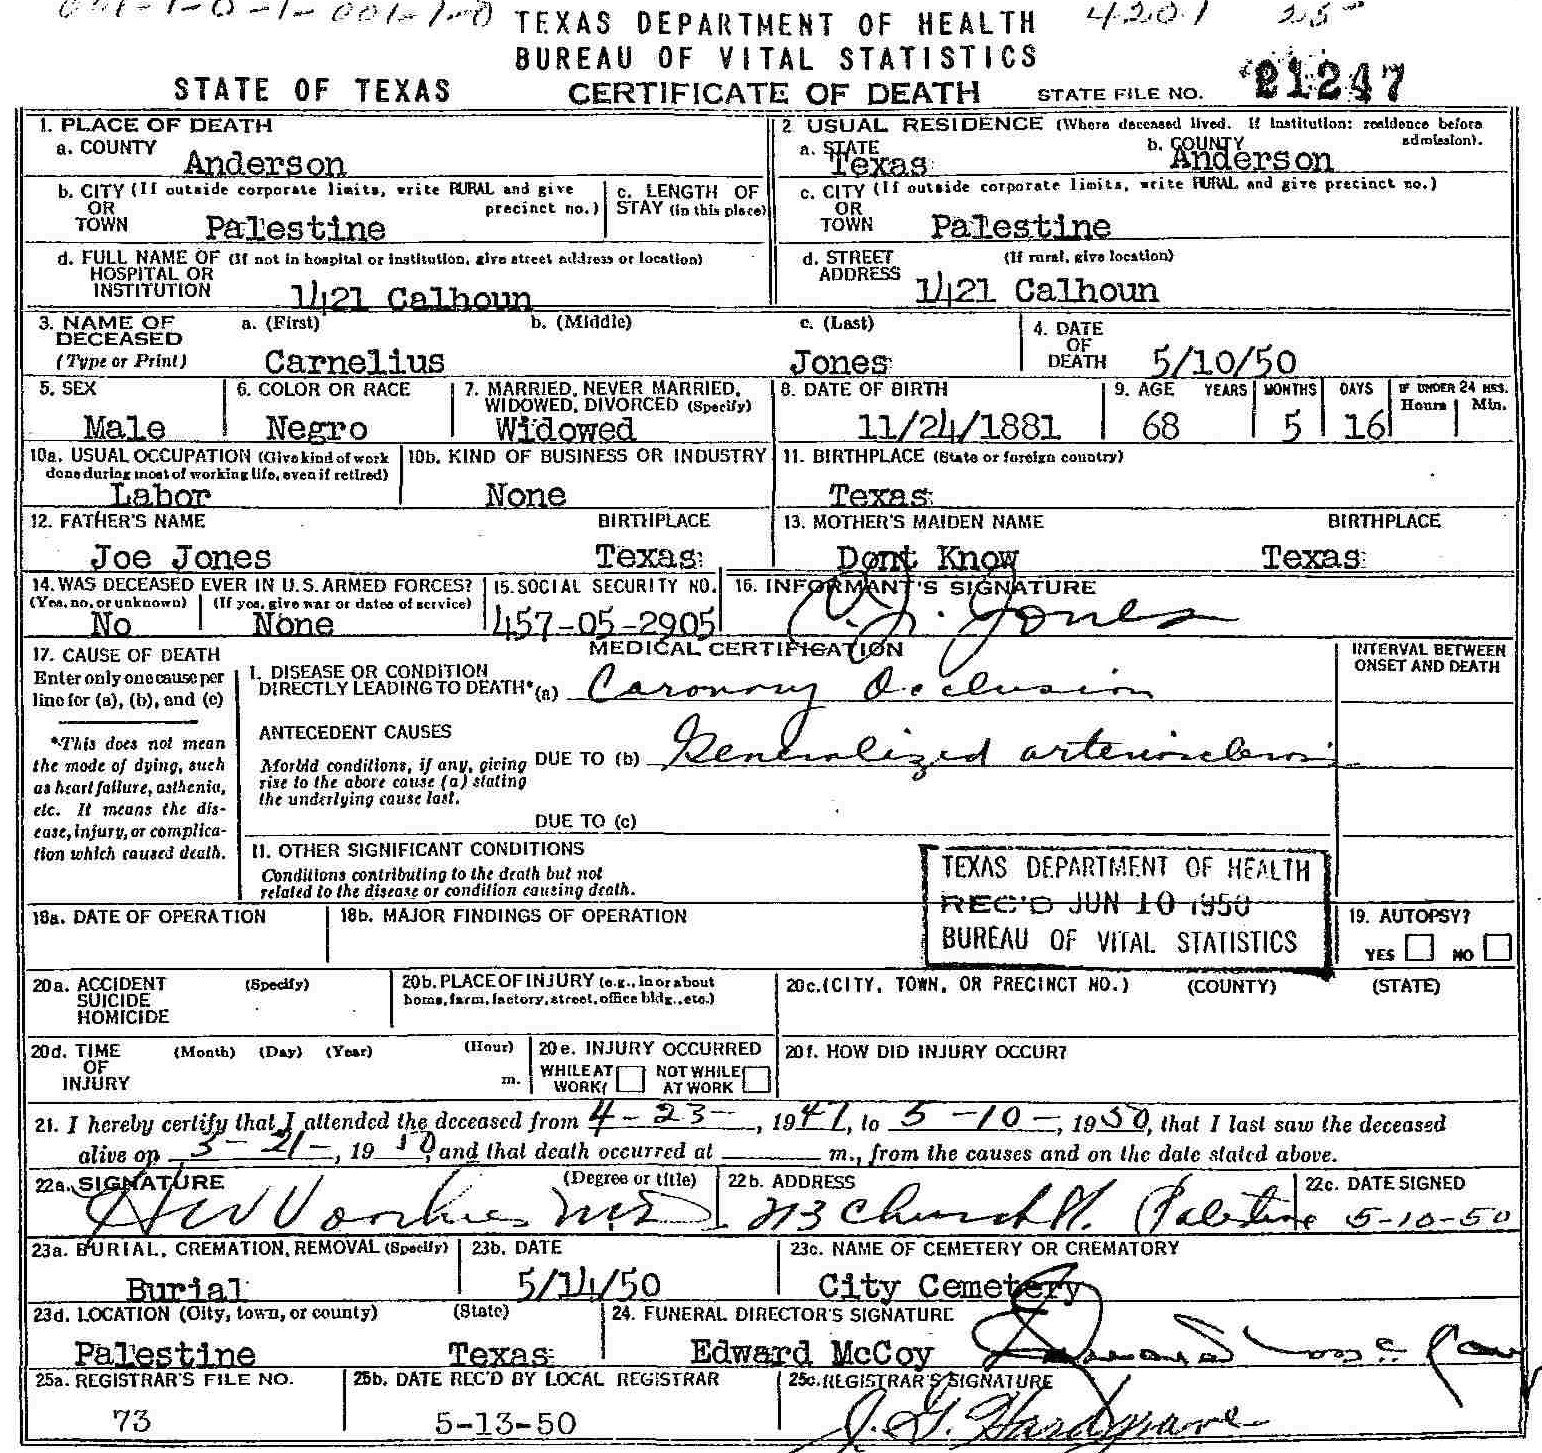 TEXAS DEPARTMENT OF HEALTH 4201 25
BUREAU OF VITAL STATISTICS
STATE OF TEXAS CERTIFICATE OF DEATH STATE FILE NO. 21247
1. PLACE OF DEATH
a. COUNTY Anderson
2 USUAL RESIDENCE (Where deceased lived. If institution: residence before admission).
a. STATE Texas b. COUNTY Anderson
b. CITY (If outside corporate limits, write RURAL and give precinct no.)
OR
TOWN Palestine
c. LENGTH OF
STAY (in this place)
c. CITY (If outside corporate limits, write RURAL and give precinct no.)
OR
TOWN Palestine
d. FULL NAME OF (If not in hospital or institution, give street address or location)
HOSPITAL OR
INSTITUTION 1421 Calhoun
d. STREET (If rural, give location)
ADDRESS 1421 Calhoun
3. NAME OF DECEASED (Type or Print)
a. (First) b. (Middle) c. (Last)
Carnelius Jones
4. DATE OF DEATH 5/10/50
5. SEX Male
6. COLOR OR RACE Negro
7. MARRIED, NEVER MARRIED, WIDOWED, DIVORCED (Specify)
Widowed
8. DATE OF BIRTH 11/24/1881
9. AGE YEARS MONTHS DAYS IF UNDER 24 HRS. Hours Min.
68 5 16
10a. USUAL OCCUPATION (Give kind of work done during most of working life, even if retired)
Labor
10b. KIND OF BUSINESS OR INDUSTRY
None
11. BIRTHPLACE (State or foreign country)
Texas
12. FATHER'S NAME BIRTHPLACE
Joe Jones Texas
13. MOTHER'S MAIDEN NAME BIRTHPLACE
Dont Know Texas
14. WAS DECEASED EVER IN U.S. ARMED FORCES?
(Yes, no, or unknown) (If yes, give war or dates of service)
No None
15. SOCIAL SECURITY NO.
457-05-2905
16. INFORMANT'S SIGNATURE
Jones
MEDICAL CERTIFICATION
17. CAUSE OF DEATH
Enter only one cause per
line for (a), (b), and (c)
*This does not mean
the mode of dying, such
as heart failure, asthenia,
etc. It means the dis-
ease, injury, or complica-
tion which caused death.
I. DISEASE OR CONDITION
DIRECTLY LEADING TO DEATH* (a) Caronary Occlusion
ANTECEDENT CAUSES
Morbid conditions, if any, giving
rise to the above cause (a) stating
the underlying cause last.
DUE TO (b) Generalized arteriosclerosis
DUE TO (c)
INTERVAL BETWEEN
ONSET AND DEATH
II. OTHER SIGNIFICANT CONDITIONS
Conditions contributing to the death but not
related to the disease or condition causing death.
TEXAS DEPARTMENT OF HEALTH
REC'D JUN 10 1950
BUREAU OF VITAL STATISTICS
18a. DATE OF OPERATION
18b. MAJOR FINDINGS OF OPERATION
19. AUTOPSY?
YES NO
20a. ACCIDENT (Specify)
SUICIDE
HOMICIDE
20b. PLACE OF INJURY (e.g., in or about
home, farm, factory, street, office bldg., etc.)
20c. (CITY, TOWN, OR PRECINCT NO.) (COUNTY) (STATE)
20d. TIME (Month) (Day) (Year) (Hour)
OF
INJURY m.
20e. INJURY OCCURRED
WHILE AT WORK NOT WHILE AT WORK
20f. HOW DID INJURY OCCUR?
21. I hereby certify that I attended the deceased from 4-23-, 1947, to 5-10-, 1950, that I last saw the deceased
alive on 3-21-, 1950, and that death occurred at m., from the causes and on the date stated above.
22a. SIGNATURE (Degree or title)
M.D.
22b. ADDRESS
213 Church St. Palestine
22c. DATE SIGNED
5-10-50
23a. BURIAL, CREMATION, REMOVAL (Specify)
Burial
23b. DATE
5/14/50
23c. NAME OF CEMETERY OR CREMATORY
City Cemetery
23d. LOCATION (City, town, or county) (State)
Palestine Texas
24. FUNERAL DIRECTOR'S SIGNATURE
Edward McCoy Edward McCoy
25a. REGISTRAR'S FILE NO.
73
25b. DATE REC'D BY LOCAL REGISTRAR
5-13-50
25c. REGISTRAR'S SIGNATURE
J. G. Hardgrave